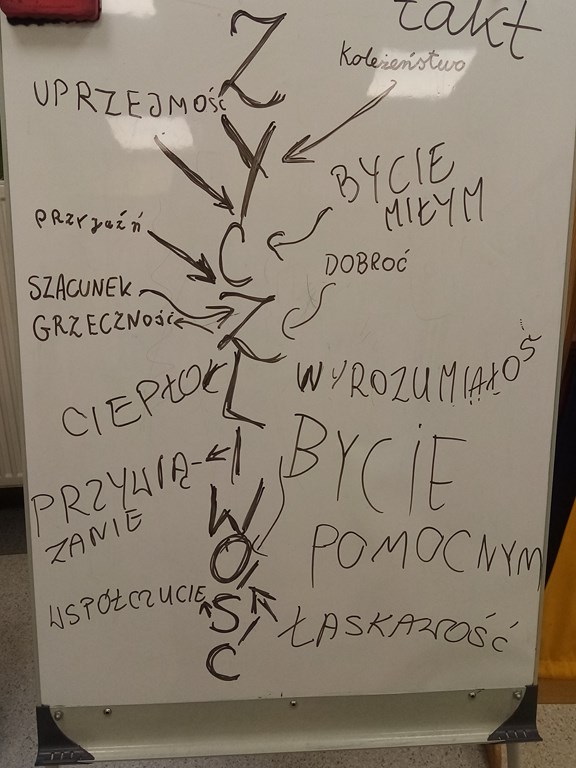 takt
Koleżeństwo
UPRZEJMOŚĆ
BYCIE
MIŁYM
PRZYJAŹŃ
DOBROĆ
SZACUNEK
GRZECZNOŚĆ
WYROZUMIAŁOŚ
CIEPŁO
BYCIE
POMOCNYM
PRZYWIĄ-
ZANIE
WSPÓŁCZUCIE
ŁASKAWOŚĆ
Ż
Y
C
Z
L
I
W
O
Ś
Ć